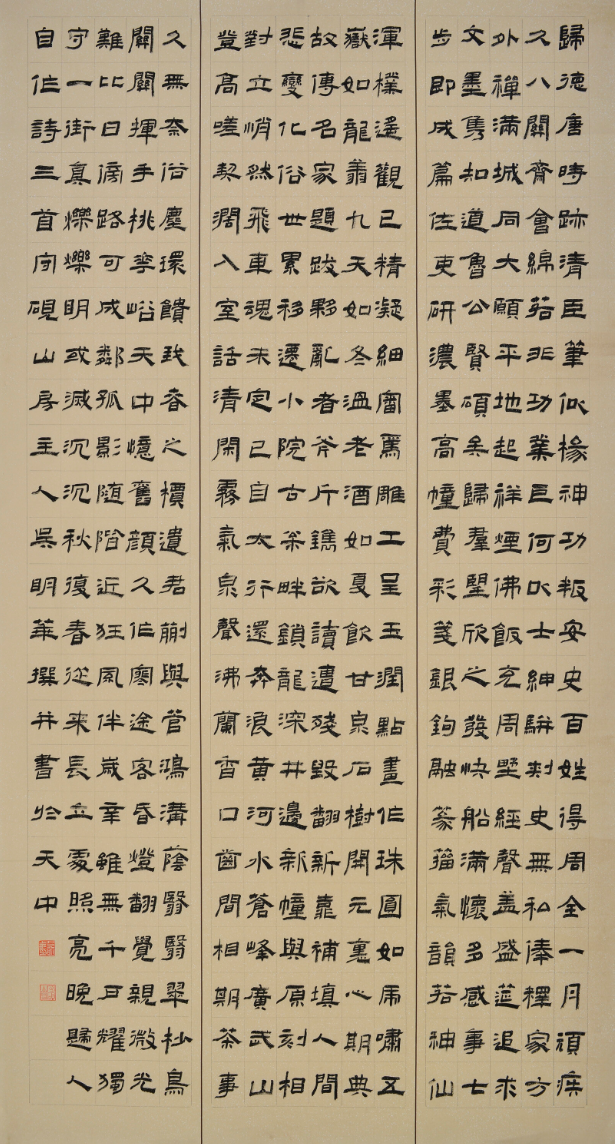 歸德唐時跡清臣筆似椽神功叛安史百姓得周全一月頑疾
久八關齋會綿若非功業巨何以士紳駢刺史無私俸釋家方
外禪滿城同大願平地起祥煙佛飯充周野經聲盖盛筵追求
文墨雋知道魯公賢碩矣歸羣望欣之發快船滿懷多感事七
步即成篇佐吏研濃墨高幢費彩箋銀鉤融篆籀氣韻若神仙
渾樸遥觀已精凝細審篤雕工呈玉潤點畫作珠圓如虎嘯五
嶽如龍翥九天如冬溫老酒如夏飲甘泉石樹開元裏心期典
故傳名家題跋夥亂者斧斤鐫欲讀遭殘毀翻新靠補填人間
悲變化俗世累移遷小院古茶畔鎖龍深井邊新幢與原刻相
對立悄然飛車魂未定已自太行還奔浪黃河水蒼峰廣武山
登高嗟契濶入室話清閑霧氣泉聲沸蘭香口齒間相期茶事
久無奈俗塵環饋我春之櫝遺君蒯與菅鴻溝蔭翳翳翠杪鳥
關關揮手桃花峪天中憶舊顏久作窮途客昏燈翻覺親微光
難比日偏路可成鄰孤影隨階近狂風伴歲辛雖無千丈耀獨
守一街真爍爍明或滅沉沉秋復春從來長立處照亮晚歸人
自作詩三首守硯山房主人吳明華撰并書於天中